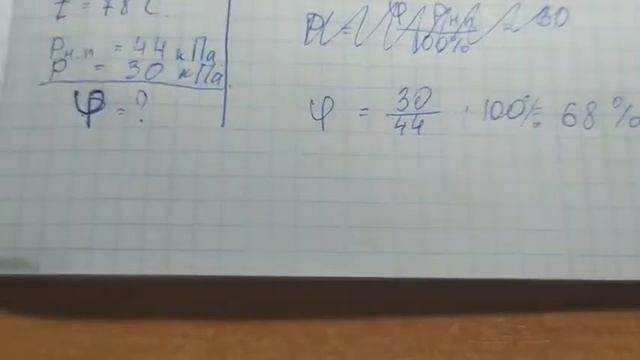 t = 78 C.
Pн.п = 44 кПа
P = 30 кПа
φ = ?
100%
30
φ = 30/44 · 100% = 68%